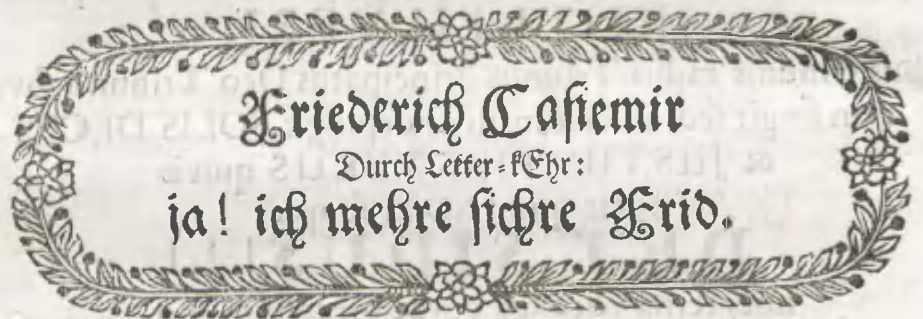 Friederich Caſiemir
Durch Letter-kEhr:
ja! ich mehre ſichre Frid.